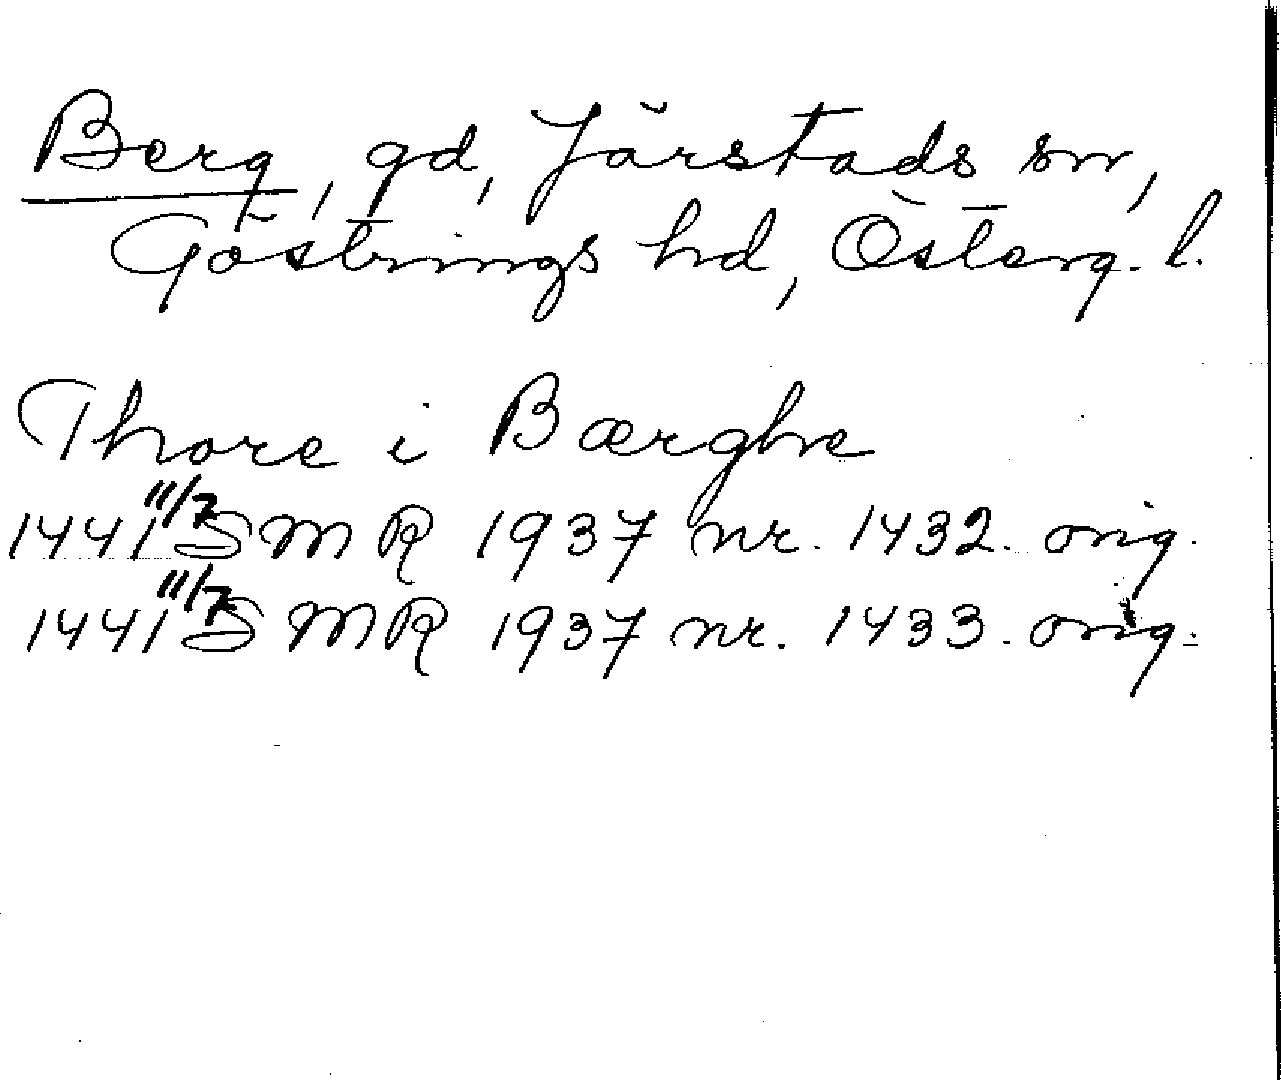 Berg, gd, Järstads sn,
Göstrings hd, Österg. l.
Thore i Bærghe
1441 11/7 SMR 1937 nr. 1432. orig.
1441 11/7 SMR 1937 nr. 1433. orig.